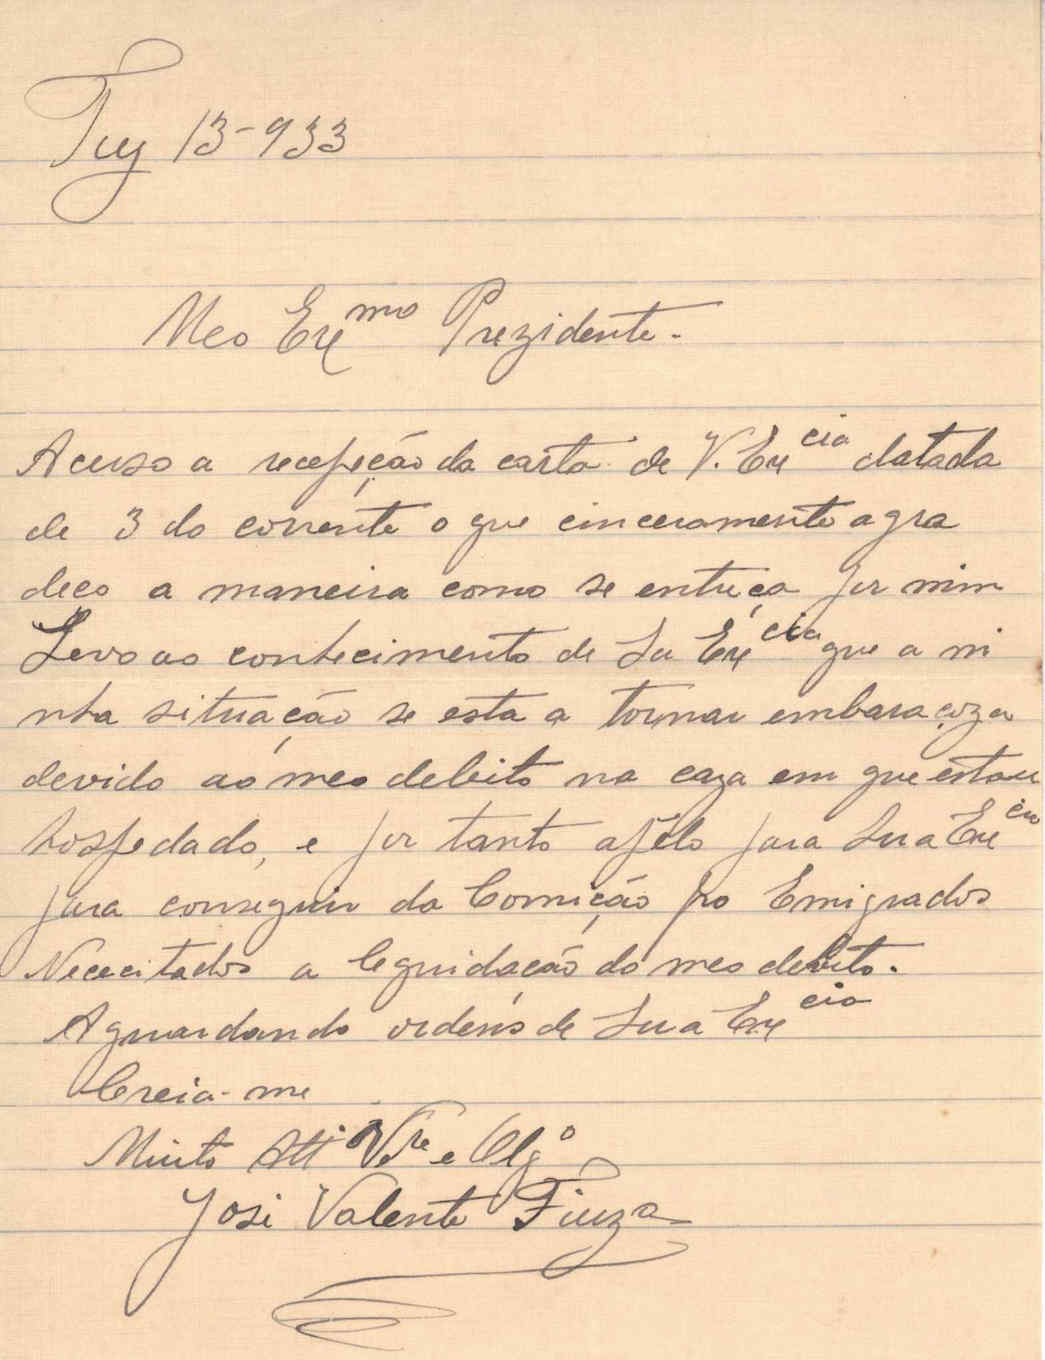 Tuy 13-933
Meo Exmo Prezidente.
Acuso a recepção da carta de V. Excia datada
de 3 do corrente o que cinceramente agra
deço a maneira como se entreça por mim
Levo ao conhecimento de Su Excia que a mi
nha situação se esta a tornar embaraçoza
devido ao meo debito na caza em que estou
hospedado, e por tanto apélo para Sua Excia
para conseguir da Comição pro Emigrados
Nececitados a leguidação do meo debito.
Aguardando ordens de Sua Excia
Creia-me
Muito Atto Vdor e Obgo
José Valente Fiuza